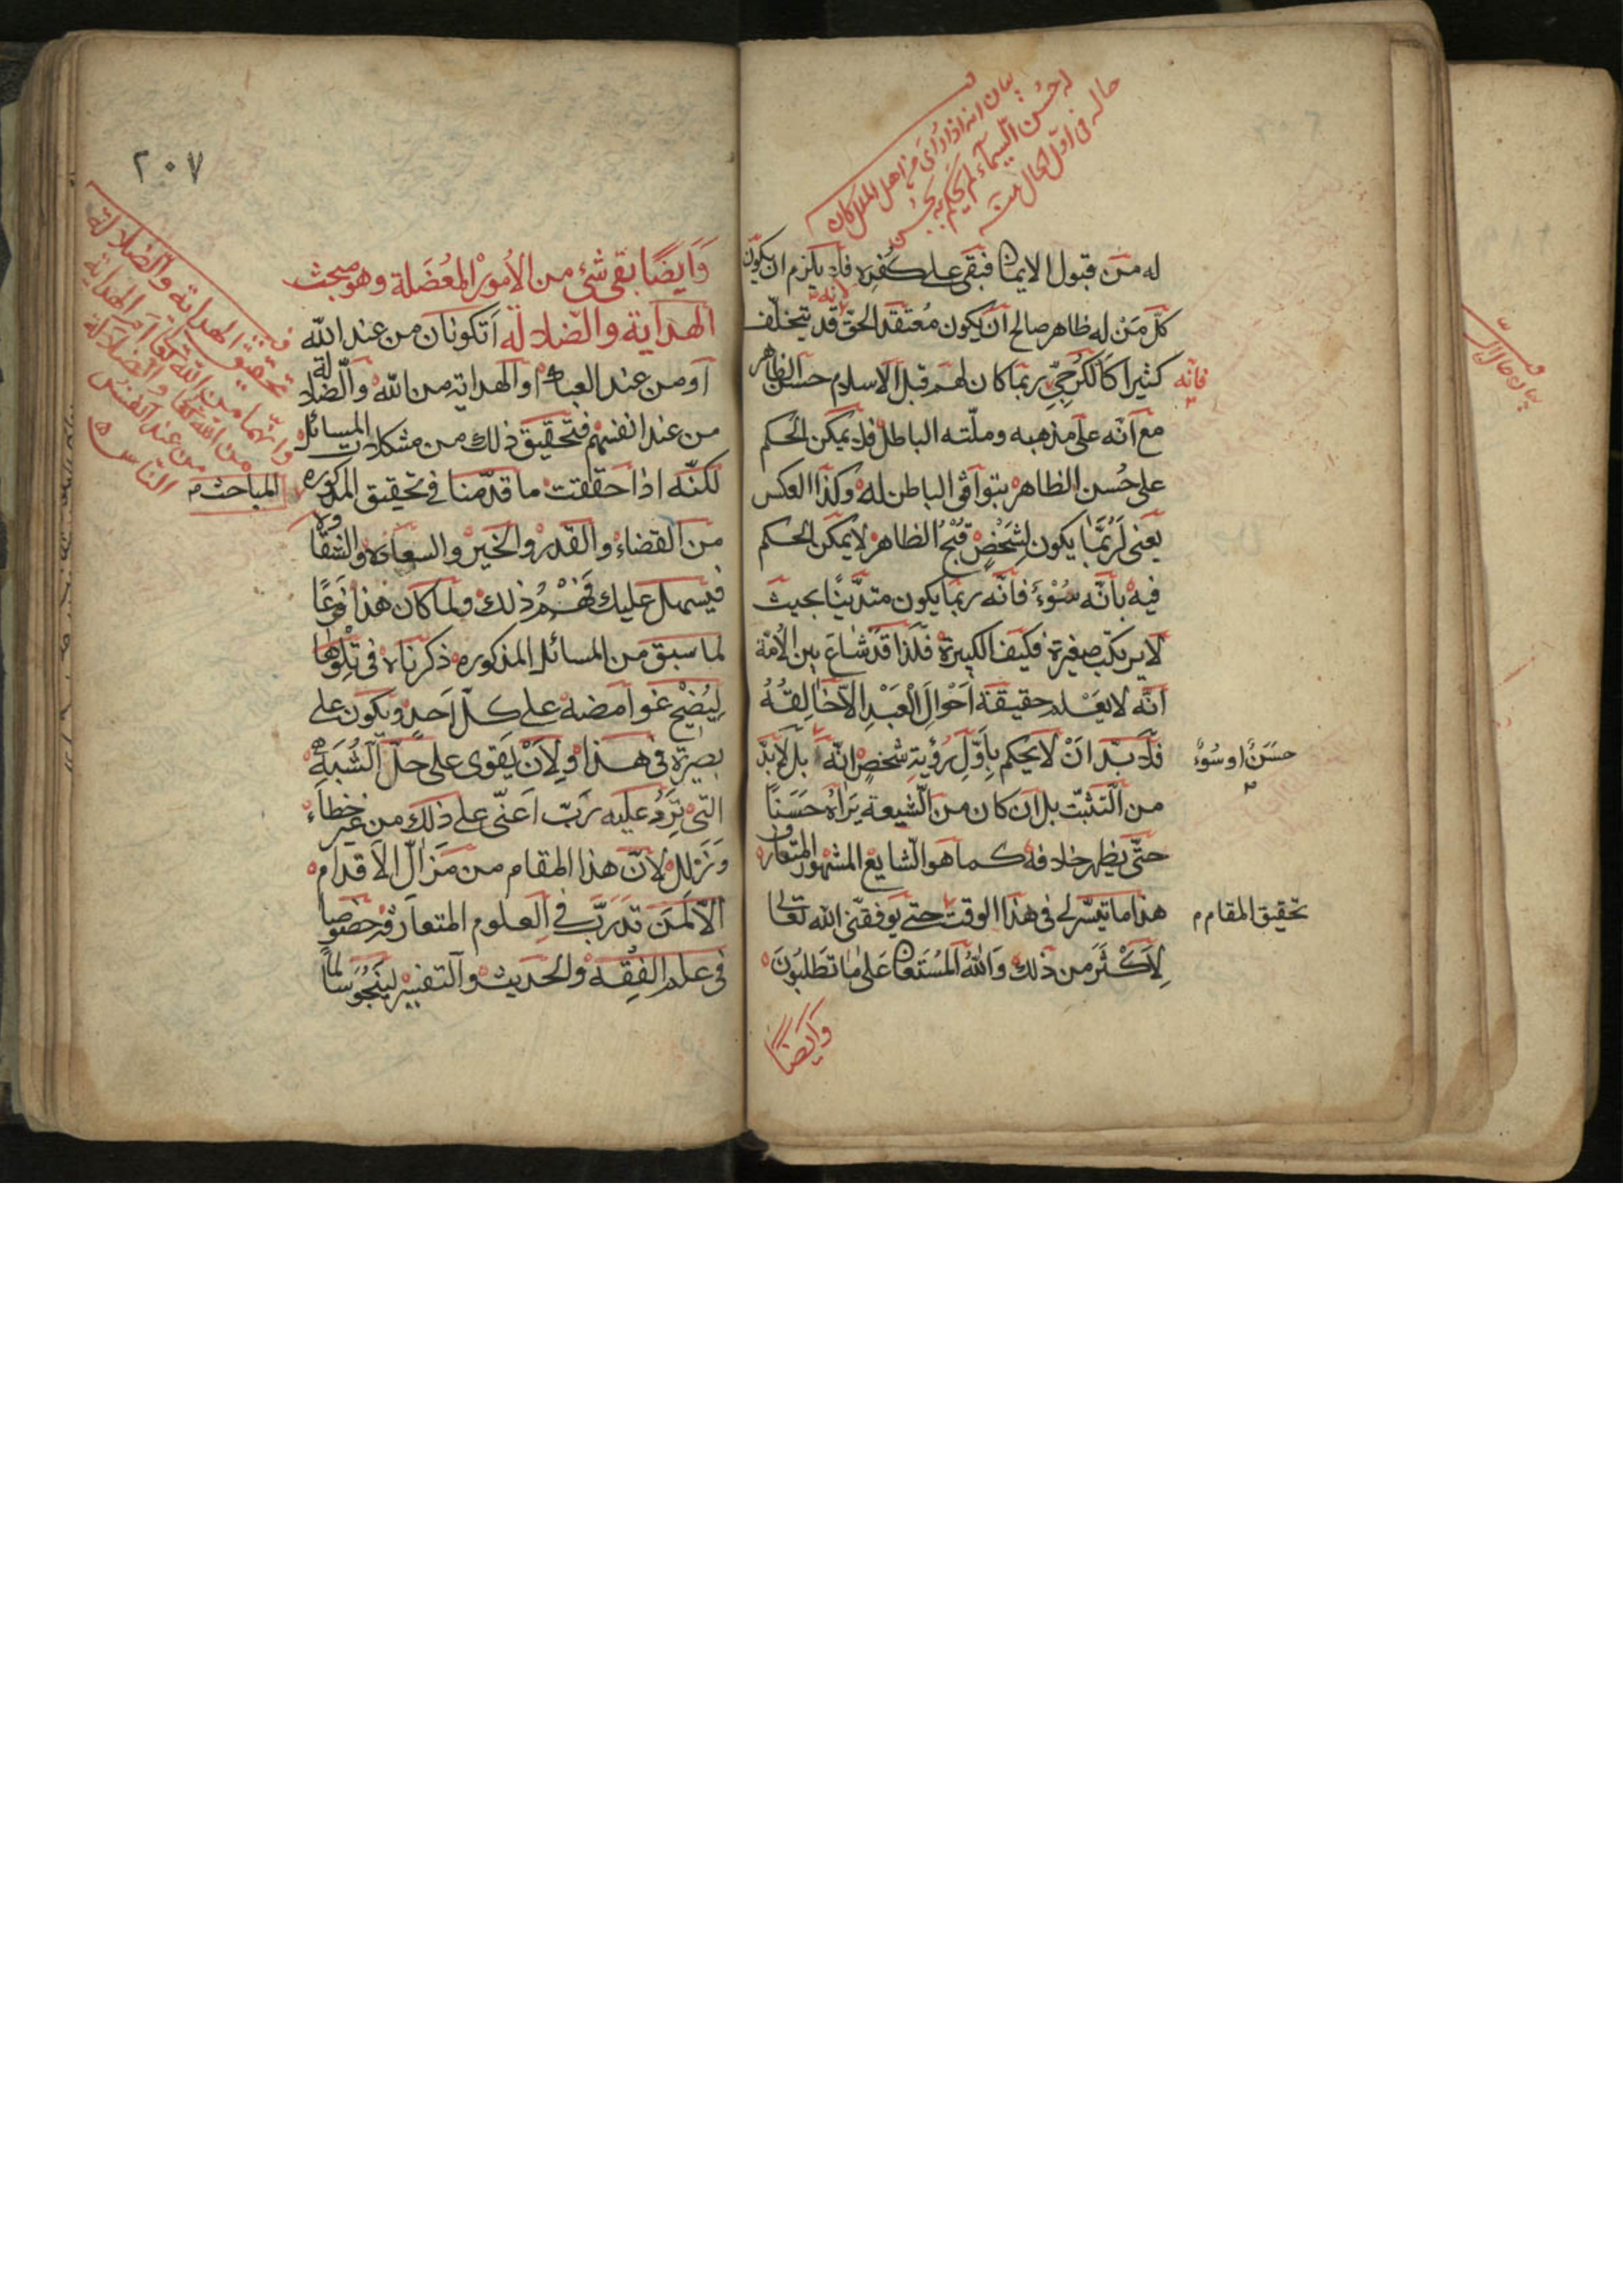 له من قبول الايمان فبقى على كفره فلا يلزم ان يكون
كلّ مَنْ له ظاهر صالح آن يكون مُعتقد الحقّ لانه قد يتخلّف
كثيرا كالكرجيّ ربما كان لهم قبل الاسلام حسن الظاهر
فانّه
مع انّه على مذهبه وملّته الباطل فلا يمكن الحكم
على حُسن الظاهر بتوافق الباطن له وكذا العكس
يعنى لَرُبَّمَا يكون لِشَخْصٍ قُبْحُ الظاهر لا يمكن الحكم
فيه بأنّه سُوْءٌ فانّه ربما يكون متديّنًا بحيث
لا يرتكب صغيرة فكيف الكبيرة فلذا قد شاع بين الأمة
انّه لا يَعْلم حقيقة اَحْوالَ الْعَبْدِ الاّ خَالِقُهُ
فلا بدّ انْ لا يحكم بِاَوّلِ رُؤيةِ شخصٍ انّه بل لا بدّ
حَسَنٌ او سُوْءٌ
من التثبّت بل ان كان من الشيعة يَرَاهُ حَسَنًا
حتّى يظهر خلافه كما هو الشايع المشهور المتعارف
هذا ما تيسّر لى فى هذا الوقت حتى يوفقنى الله تعالى
تحقيق المقام م
لِاَكْثَرَ من ذلك وَاللهُ الْمُسْتَعَانُ عَلى مَا تَطْلبُونَ
وَايضًا
٢٠٧
وَايضًا بقى شئ من الأمور المُعْضَلة وهو مبحث
الهداية والضّلالة اَتكونان من عند الله
او من عند العباد او الهداية من الله والضّلالة
من عند انفسهم فتحقيق ذلك من مشكلات المسائل
لكنّه اذا حقّقت ما قدّمنا فى تحقيق المذكوره
المباحث م
من القضاء والقدر والخير والسعادة والشقاوة
فيسهل عليك فَهْمُ ذلك ولما كان هذا فَرعًا
لما سبق من المسائل المذكوره ذكرناه فى تِلْوِهَا
لِيُضْحِ غوامضه على كلّ اَحدٍ ويكون على
بصيرةٍ فى هذا ولِاَنْ يَقوى على حلّ الشُّبَهِ
التى تَرِدُ عليه رَبّ اَعنّى على ذلك من غير خطاء
وَزَلل لانّ هذا المقام من مَزالّ الاقدام
الاّ لمن تدرّب فى العلوم المتعارفه خصوصا
فى علم الفِقْه والحديث والتفسير لِيَنْجُوَ سالمًا
تحقيق الهداية والضّلالة
وانّهما من الله تعالى ام الهداية
من الله تعالى والضلالة
من عند انفس
الناس